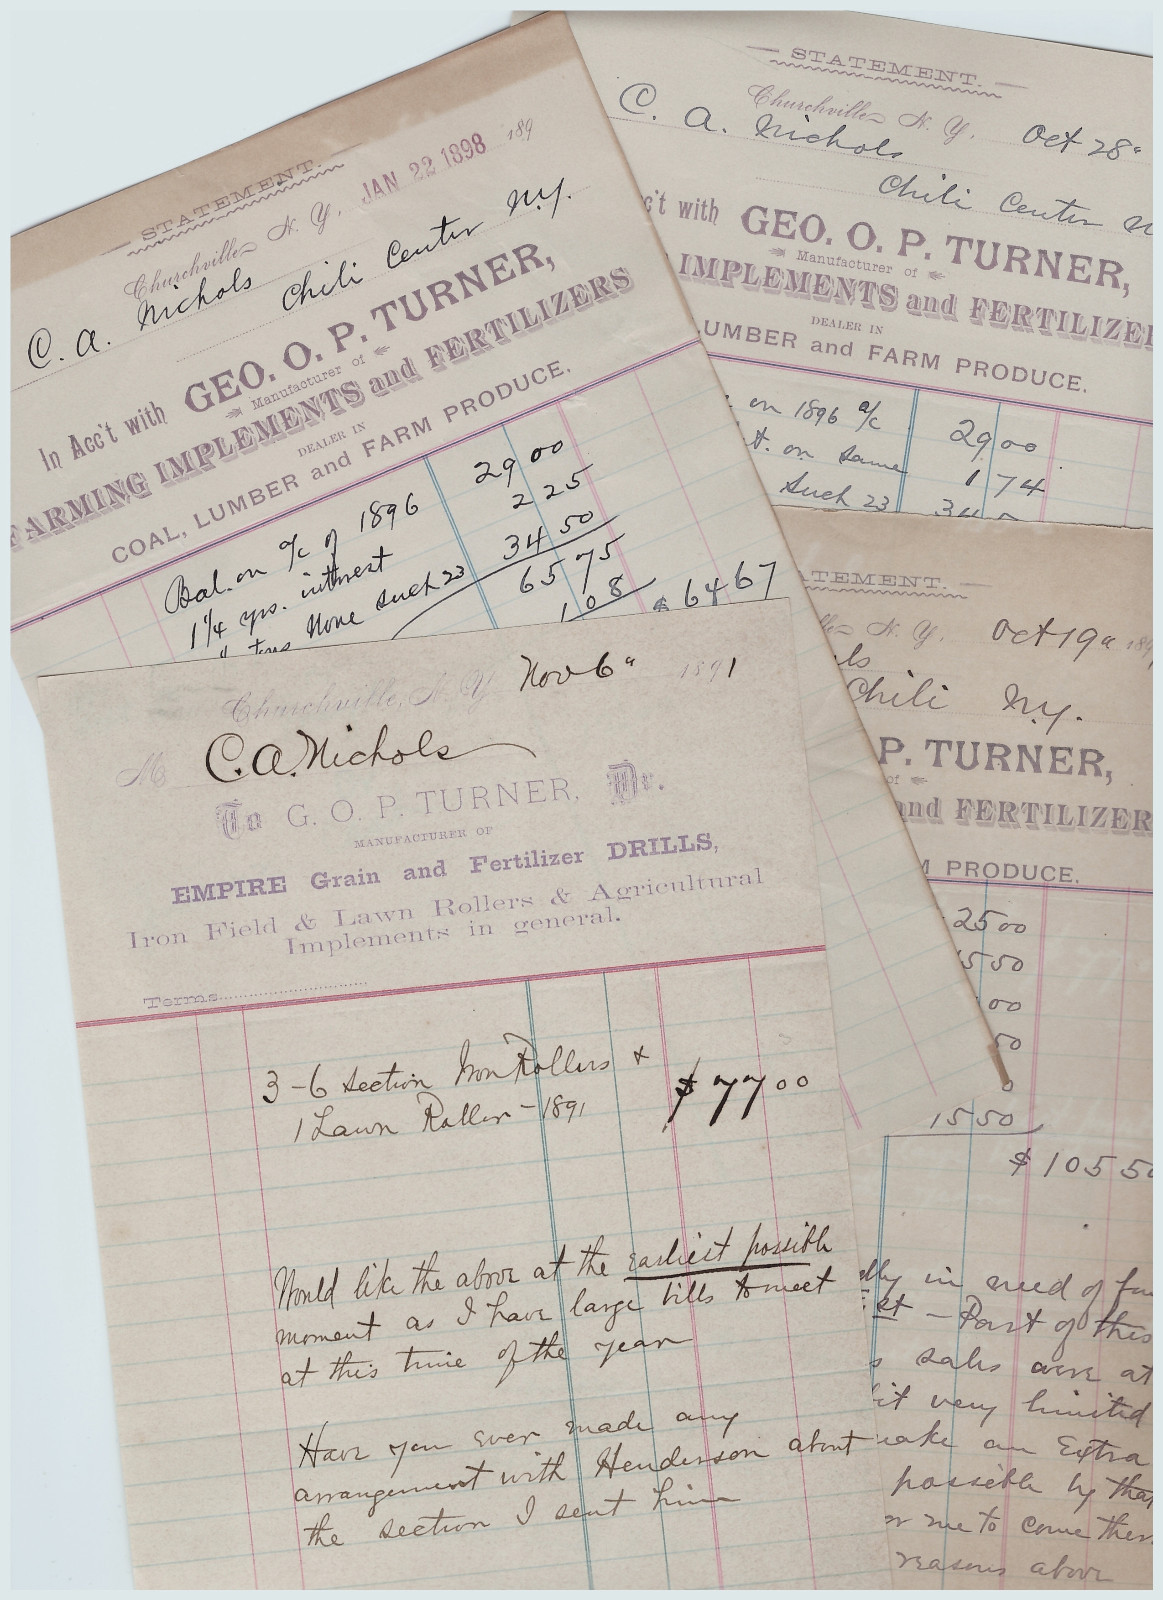 STATEMENT.
Churchville N. Y. JAN 22 1898 189
C. A. Nichols
Chili Center N.Y.
In Acc't with GEO. O. P. TURNER,
Manufacturer of
FARMING IMPLEMENTS and FERTILIZERS
DEALER IN
COAL, LUMBER and FARM PRODUCE.
Bal. on a/c of 1896 29 00
1 1/4 yrs. interest 2 25
34 50
65 75
1 08 $ 64 67
STATEMENT.
Churchville N. Y. Oct 28"
C. A. Nichols
Chili Center N
c't with GEO. O. P. TURNER,
Manufacturer of
IMPLEMENTS and FERTILIZE
DEALER IN
LUMBER and FARM PRODUCE.
on 1896 a/c 29 00
t. on same 1 74
23
TATEMENT.
N. Y. Oct 19" 189
ls
Chili N.Y.
P. TURNER,
of
and FERTILIZER
M PRODUCE.
25 00
5 50
00
50
0
15 50
$ 105 50
lly in need of
st - Part of this
s sales were at
it very limited
make an Extra
possible by that
or me to come
reasons above
Churchville, N. Y. Nov 6" 1891
M C. A. Nichols
To G. O. P. TURNER, Dr.
MANUFACTURER OF
EMPIRE Grain and Fertilizer DRILLS,
Iron Field & Lawn Rollers & Agricultural
Implements in general.
Terms
3 - 6 section Iron Rollers &
1 Lawn Roller - 1891 $ 77 00
Would like the above at the earliest possible
moment as I have large bills to meet
at this time of the year
Have you ever made any
arrangement with Henderson about
the section I sent him